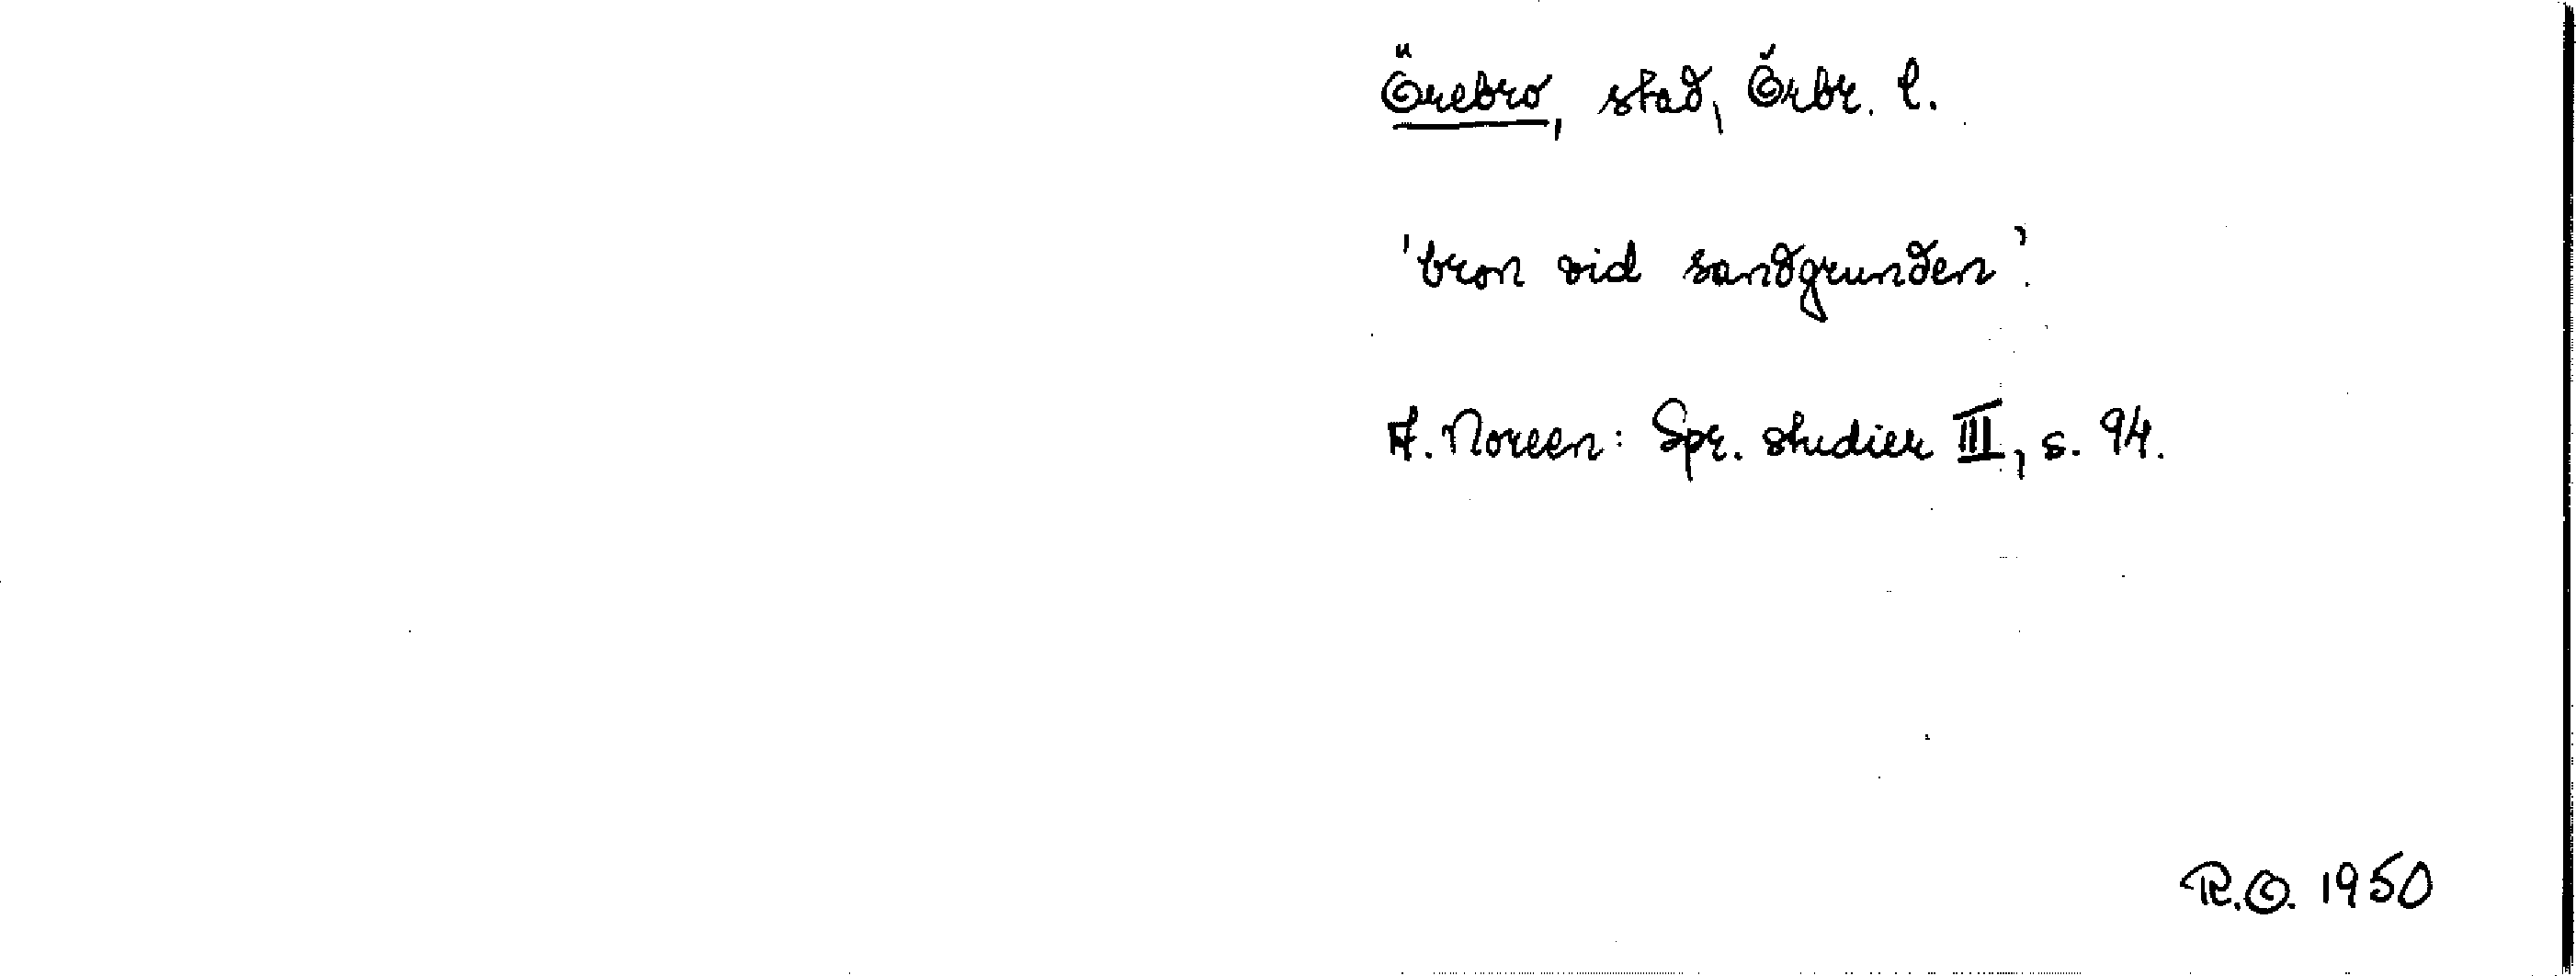 Örebro, stad, Örbr. l.
'bron vid sandgrunden'.
A. Noreen: Spr. studier III, s. 94.
R.O. 1950